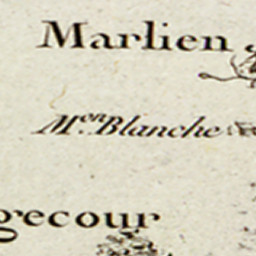 Marlien
M.en Blanche
gecour